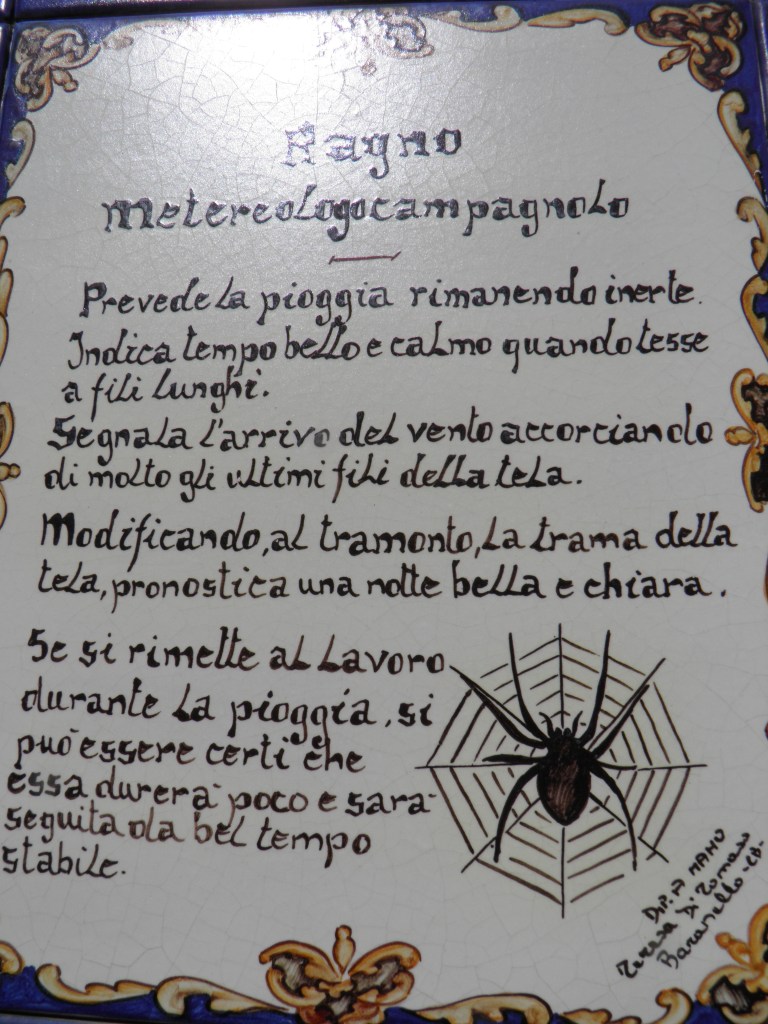 Ragno
metereologo campagnolo
Prevede la pioggia rimanendo inerte.
Indica tempo bello e calmo quando tesse
a fili lunghi.
Segnala l'arrivo del vento accorciando
di molto gli ultimi fili della tela.
Modificando, al tramonto, la trama della
tela, pronostica una notte bella e chiara.
Se si rimette al lavoro
durante la pioggia, si
può essere certi che
essa durerà poco e sarà
seguita da bel tempo
stabile.
DIP. A MANO
Teresa Di Tomaso
Baranello -CB-